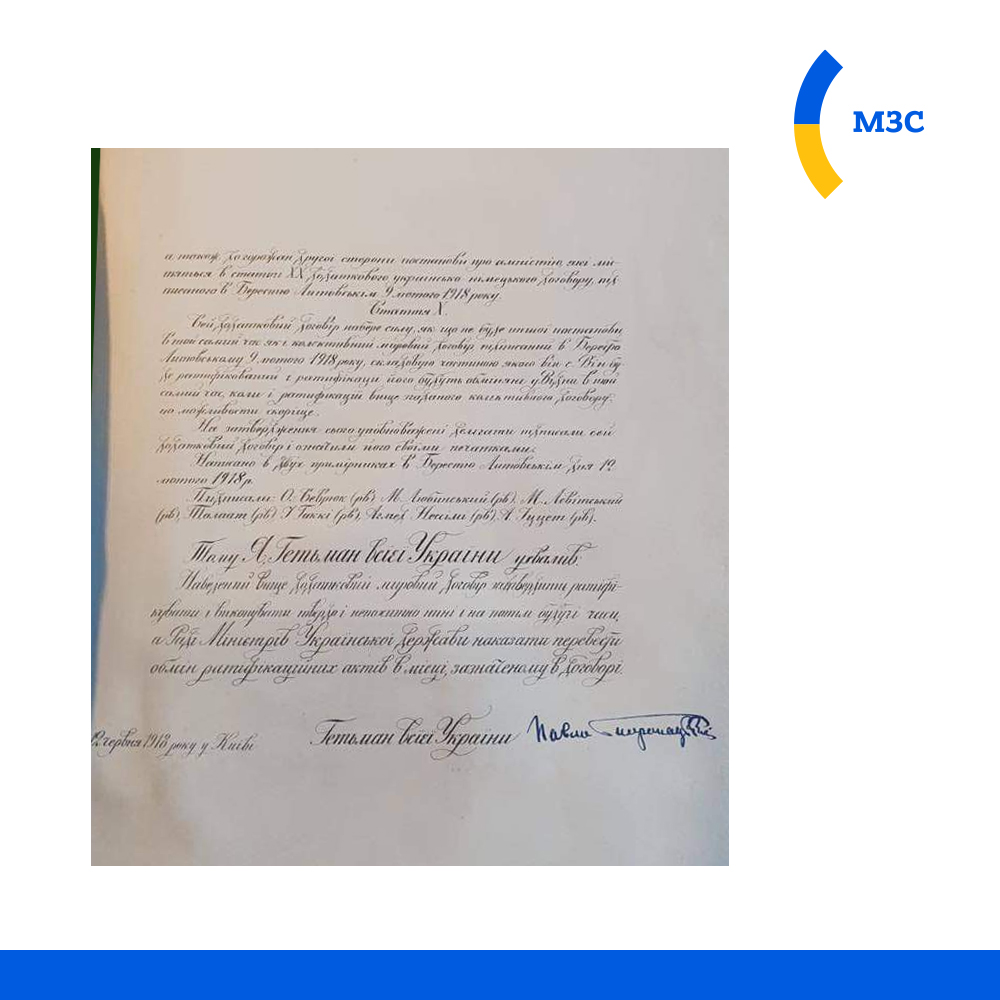 МЗС
а також до горожан другої сторони постанови про амністію, які мі-
стяться в статті XX Додаткового українсько німецького договору, під-
писаного в Берестю Литовськім 9 лютого 1918 року.
Стаття X.
Сей додатковий договір набере силу, як що не буде иншої постанови,
в той самий час як і колективний мировий договір, підписаний в Бересті
Литовському 9 лютого 1918 року, складовую частиною якого він є. Він бу-
де ратифікований і ратифікаци його будуть обміняні у Відни в той
самий час, коли і ратифікацій вище згаданого договору,
по можливости скорше.
На затвердження сього уповноважені делєгати підписали сей
додатковий договір і його своїми печатками.
Написано в двух примірниках в Берестю Литовськім дня 12
лютого 1918 р.
Підписали: О. Севрюк (рв), М. Любинський (рв), М. Левітський
(рв), Талаат (рв), І. Гаккі (рв), Ахмед Нессімі (рв), А. Іццет (рв).
Тому Я, Гетьман всієї України ухвалив:
Наведений вище додатковий мировий договір ратифі-
кувати і виконувати твердо і непохитно нині і на потім будучі часи,
а Раді Міністрів Української Держави наказати перевести
обмін ратифікаційних актів в місці, зазначеному в договорі.
12 червня 1918 року у Київі
Гетьман всієї України Павло Скоропадський